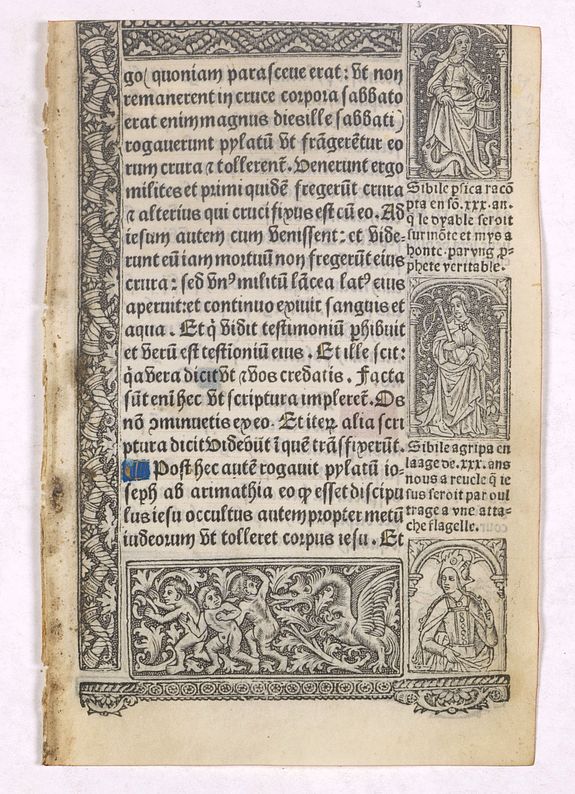 go( quoniam parasceue erat: vt non
remanerent in cruce corpora sabbato
erat enim magnus dies ille sabbati)
rogauerunt pylatū vt frāgerētur eo
rum crura ⁊ tollerent. Venerunt ergo
milites et primi quidē fregerūt crura
⁊ alterius qui crucifixus est cū eo. Ad
iesum autem cum venissent: et vide-
runt eū iam mortuū non fregerūt eius
crura: sed vn⁹ militū lācea lat⁹ eius
aperuit: et continuo exiuit sanguis et
aqua. Et q̇ vidit testimoniū phibuit
et verū est testioniū eius. Et ille scit:
q̇a vera dicit vt ⁊ vos credatis. Facta
sūt eni hec vt scriptura implerēt. Os
nō ↄminuetis ex eo. Et iteꝝ alia scri
ptura dicit videbūt ī quē trāsfixerūt.
Post hec autē rogauit pylatū io-
seph ab arimathia eo ꝙ esset discipu
lus iesu occultus autem propter metū
iudeorum vt tolleret corpus iesu. Et
Sibile psica racō
pta en sō.xxx.an.
q̄ le dyable seroit
surmōte et mys a
honte.par vng ꝓ-
phete veritable.
Sibile agripa en
laage de.xxx.ans
nous a reucle q̄ ie
sus seroit par oul
trage a vne atta-
che flagelle.